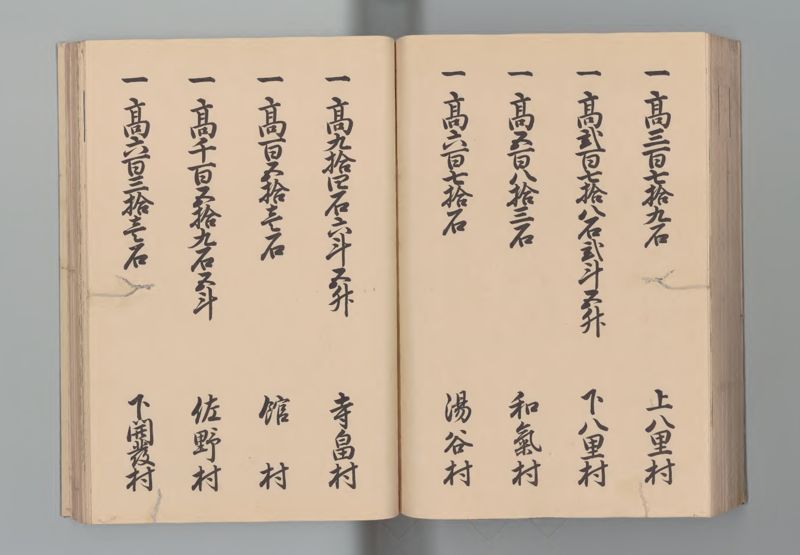 一 高三百七拾九石 上八里村
一 高弐百七拾八石弐斗五升 下八里村
一 高五百八拾三石 和氣村
一 高六百七拾石 湯谷村
一 高九拾四石六斗五升 寺畠村
一 高百五拾壱石 舘村
一 高千百五拾九石五斗 佐野村
一 高六百三拾壱石 下開發村